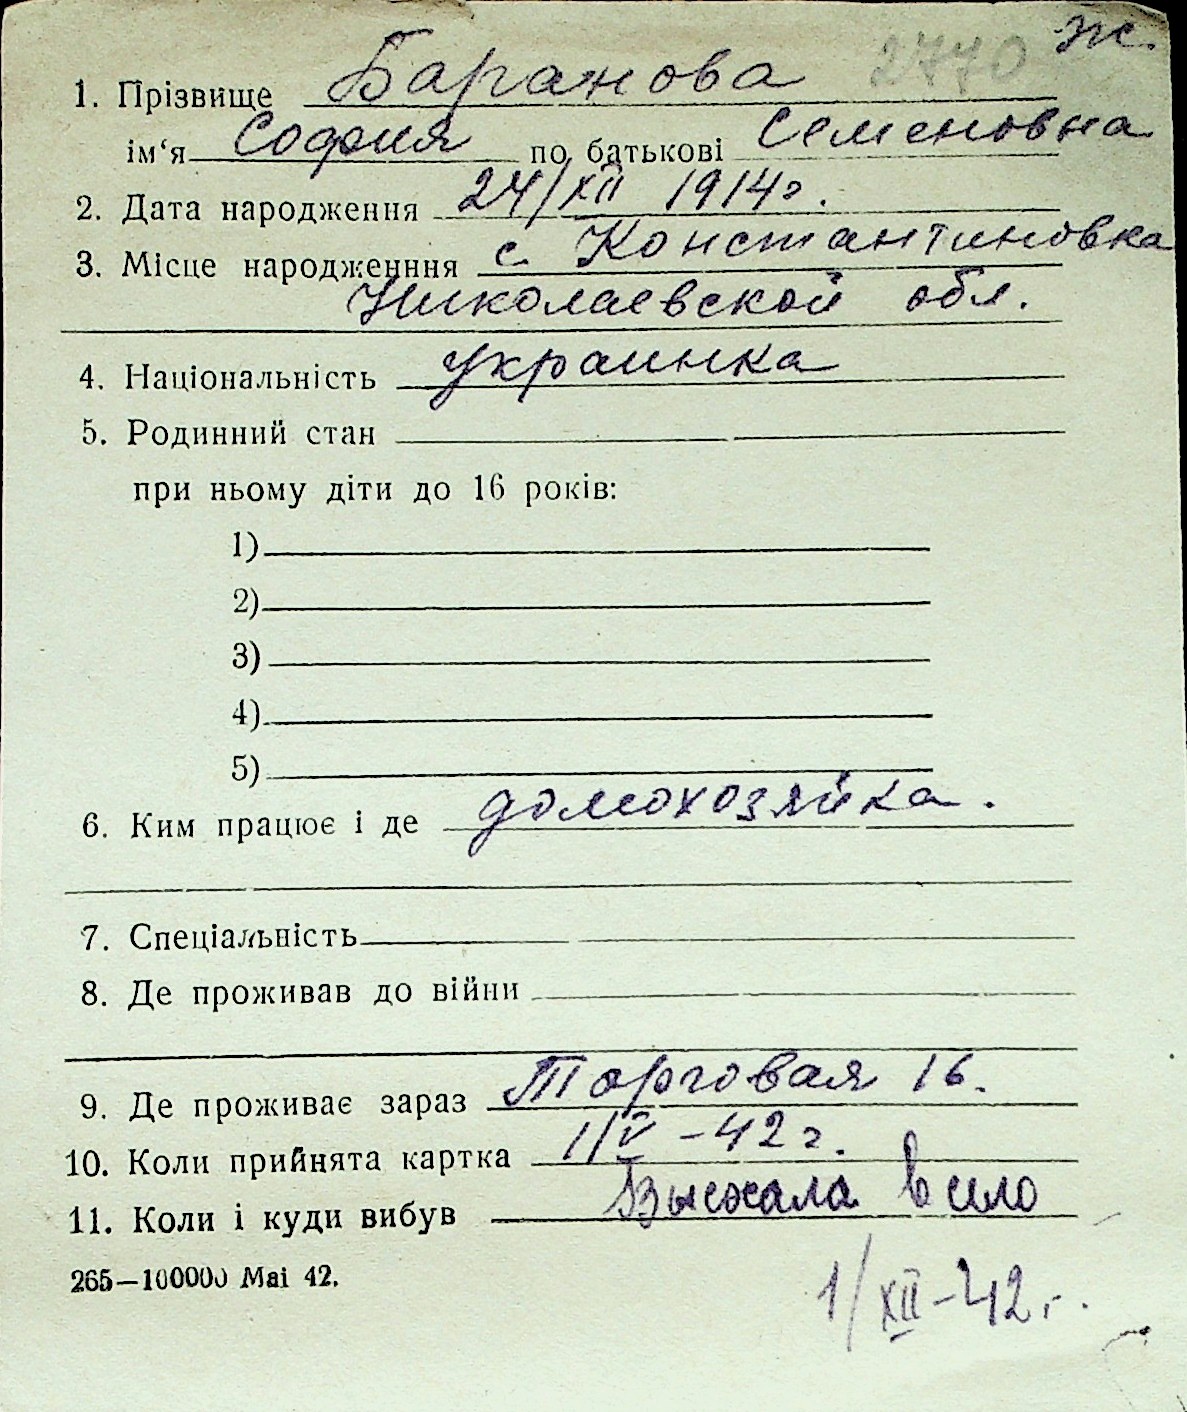 2770 Ж.
1. Прізвище Баранова
ім‘я София по батькові Семеновна
2. Дата народження 24/XII 1914г.
3. Місце народженння с. Константиновка
Николаевской обл.
4. Національність украинка
5. Родинний стан
при ньому діти до 16 років:
1)
2)
3)
4)
5)
6. Ким працює і де домохозяйка.
7. Спеціальність
8. Де проживав до війни
9. Де проживає зараз Торговая 16.
10. Коли прийнята картка 1/V-42 г.
11. Коли і куди вибув Выехала в село
265—100000 Mai 42.
1/XII-42 г.